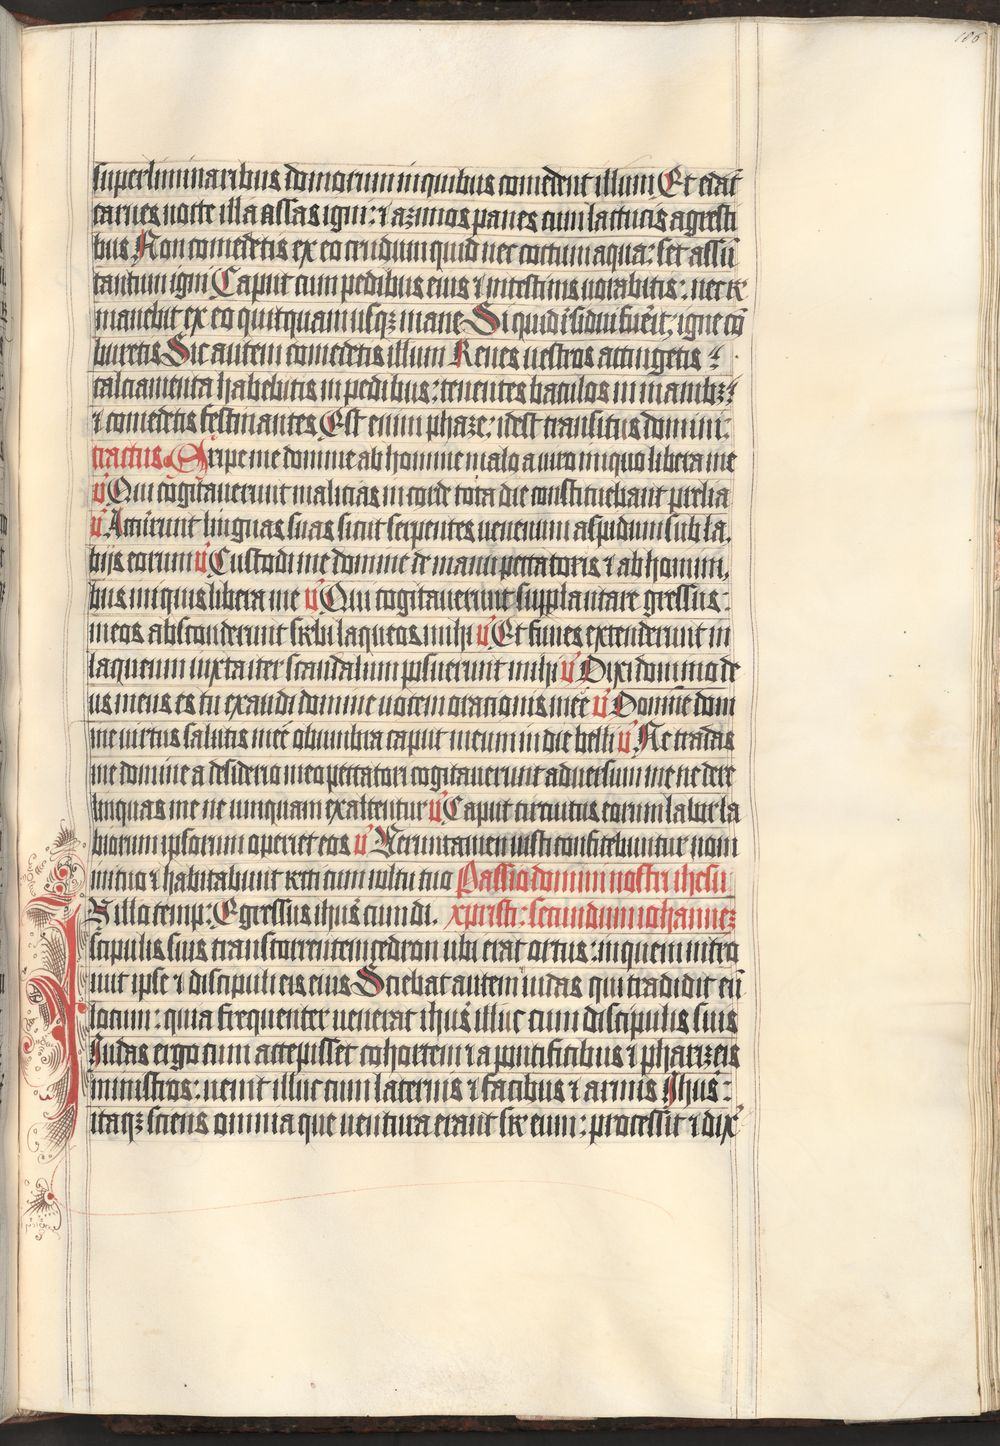 186
superliminaribus domorum in quibus comedent illum Et edāt
carnes nocte illa assas igni: ⁊ azimos panes cum lactucis agresti
bus Non comedetis ex eo crudum quid nec coctum aqua: set assū
tantum igni Caput cum pedibus eius ⁊ intestinis uorabitis: nec re
manebit ex eo quitquam usqꝫ mane Si quid residuū fuerit: igne cō
buretis Sic autem comedetis illum Renes uestros accingetis:
calciamenta habebitis in pedibus: tenentes baculos in manibꝫ:
⁊ comedetis festinantes Est enim phaze: idest transitus domini:
tractus Eripe me domine ab homine malo a uiro iniquo libera me
v̄ Qui cogitauerunt malicias in corde tota die constituebant prelia
v̄ Acuerunt linguas suas sicut serpentes uenenum aspidum sub la,
bijs eorum v̄ Custodi me domine de manu peccatoris ⁊ ab homini,
bus iniquis libera me v̄ Qui cogitauerunt supplantare gressus:
meos absconderunt superbi laqueos mihi v̄ Et funes extenderunt in
laqueum iuxta iter scandalum posuerunt mihi v̄ Dixi domino de
us meus es tu exaudi domine uocem oracionis mee v̄ Domine dom
ine uirtus salutis mee obumbra caput meum in die belli v̄ Ne tradas
me domine a desiderio meo peccatori cogitauerunt aduersum me ne dere
linquas me ne umquam exaltentur v̄ Caput circuitus eorum labor la
biorum ipsorum operiet eos v̄ Veruntamen iusti confitebuntur nom
ini tuo ⁊ habitabunt recti cum uoltu tuo Passio domini nostri ihesu
N illo temp: Egressus ihūs cum di. xpristi: secundum iohannez
scipulis suis trans torrentem cedron ubi erat ortus: in quem intro
iuit ipse ⁊ discipuli eis eius Sciebat autem iudas qui tradidit eū
locum: quia frequenter uenerat ihūs illuc cum discipulis suis
Iudas ergo cum accepisset cohortem ⁊ a pontificibus ⁊ pharizeis
ministros: uenit illuc cum laternis ⁊ facibus ⁊ armis Ihūs:
itaqꝫ sciens omnia que uentura erant super eum: processit ⁊ dix̄